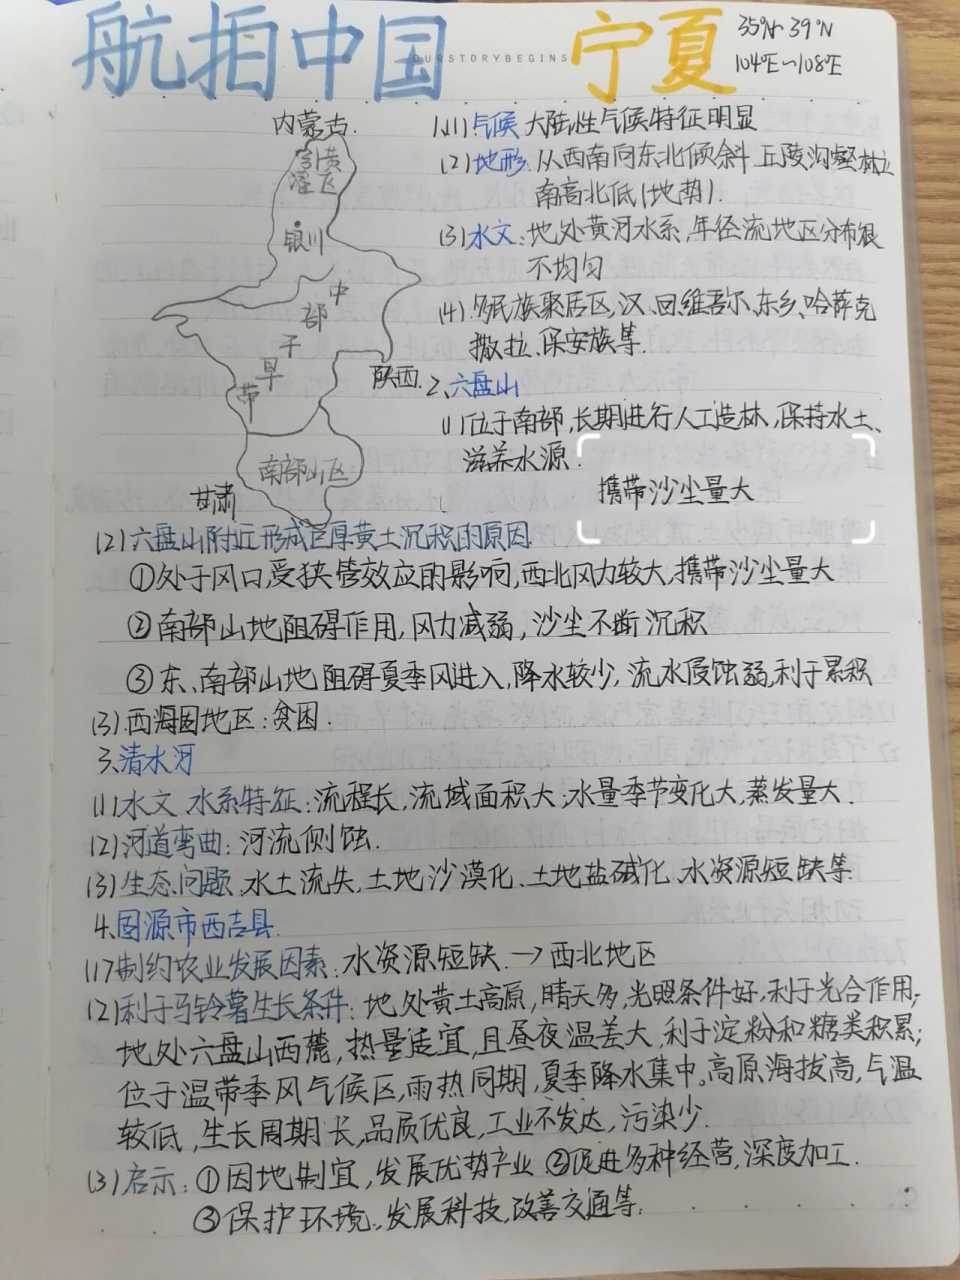 航拍中国 宁夏 35°N~39°N
OURSTORYBEGINS
104°E~108°E
内蒙古
引黄
灌区
银川
中
部
干
旱
带
陕西
南部山区
甘肃
1.(1)气候 大陆性气候特征明显
(2)地形:从西南向东北倾斜 丘陵沟壑林立
南高北低(地势).
(3)水文:地处黄河水系,年径流地区分布很
不均匀
(4).多民族聚居区,汉、回、维吾尔、东乡、哈萨克
撒拉、保安族等.
2.六盘山
(1)位于南部,长期进行人工造林,保持水土、
滋养水源.
携带沙尘量大
(2)六盘山附近形成巨厚黄土沉积的原因
①处于风口,受狭管效应的影响,西北风力较大,携带沙尘量大
②南部山地阻碍作用,风力减弱,沙尘不断沉积
③东、南部山地阻碍夏季风进入,降水较少,流水侵蚀弱,利于累积
(3).西海固地区:贫困.
3.清水河
(1)水文、水系特征:流程长,流域面积大;水量季节变化大,蒸发量大.
(2)河道弯曲:河流侧蚀.
(3)生态问题:水土流失,土地沙漠化、土地盐碱化、水资源短缺等
4.固源市西吉县
(1)制约农业发展因素:水资源短缺.→西北地区
(2)利于马铃薯生长条件:地处黄土高原,晴天多,光照条件好,利于光合作用;
地处六盘山西麓,热量适宜,且昼夜温差大,利于淀粉和糖类积累;
位于温带季风气候区,雨热同期,夏季降水集中。高原海拔高,气温
较低,生长周期长,品质优良,工业不发达,污染少.
(3)启示:①因地制宜,发展优势产业 ②促进多种经营,深度加工.
③保护环境,发展科技,改善交通等.